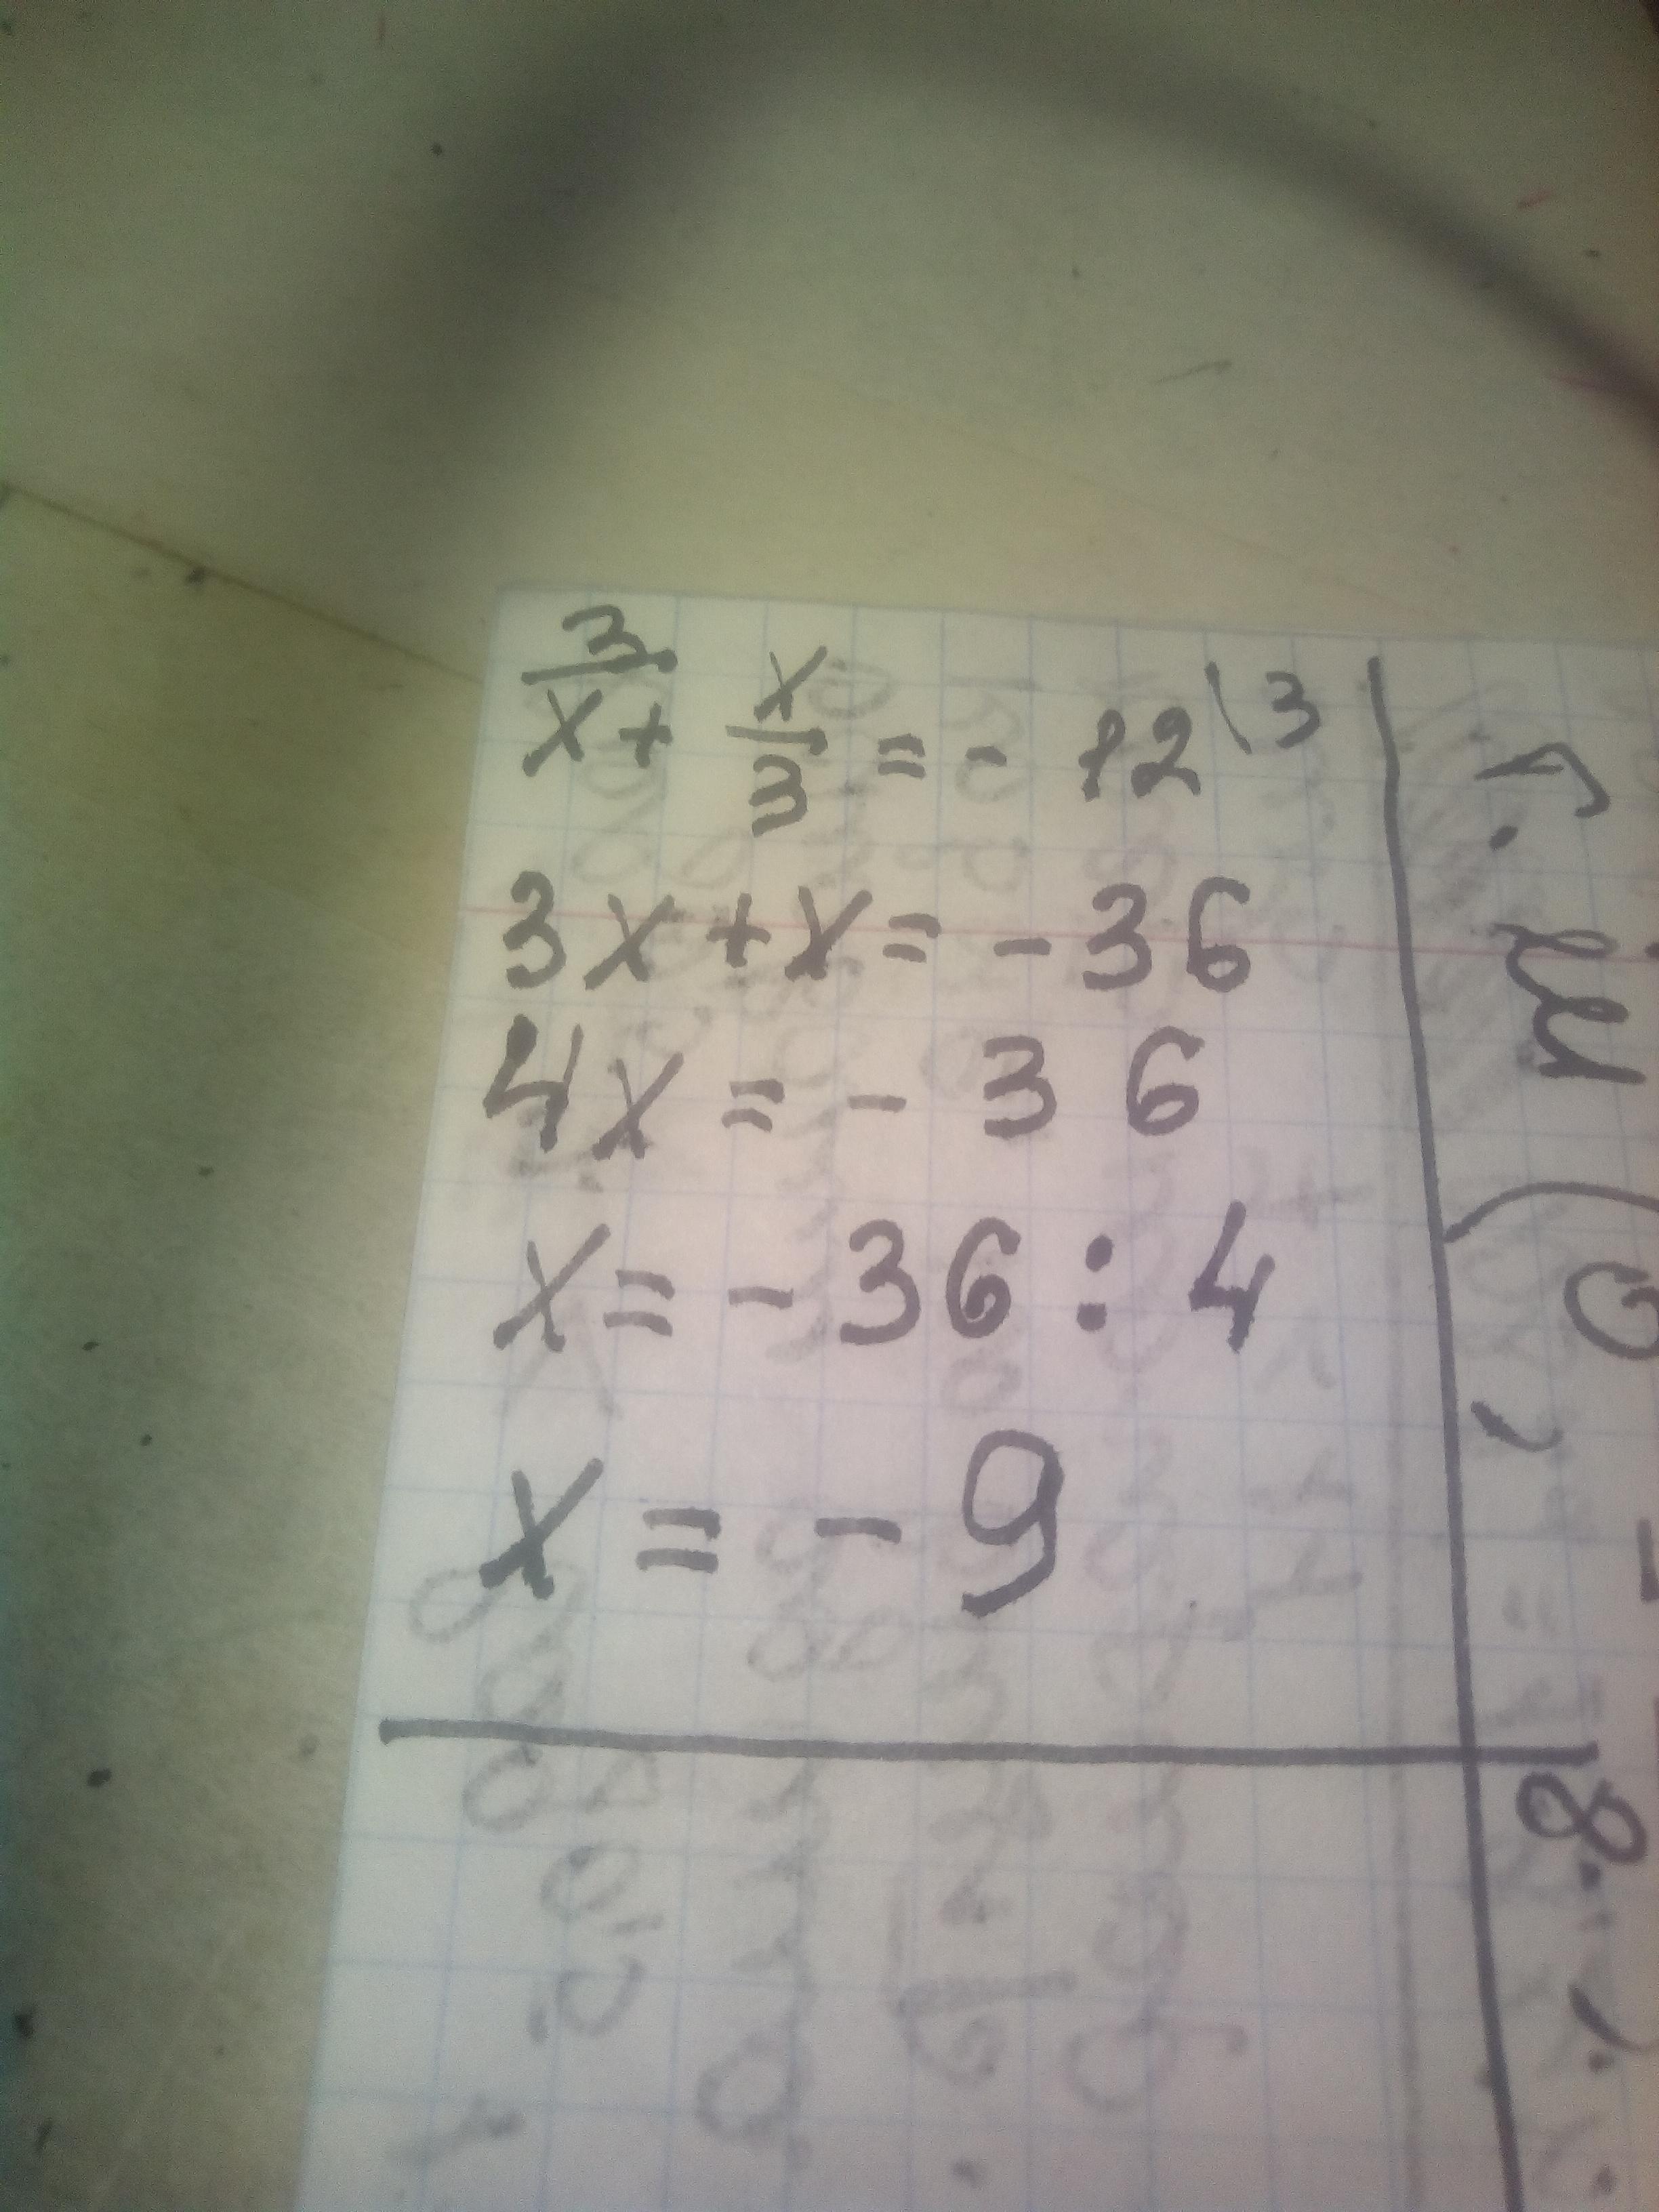 3/x + x/3 = - 12\3
3x + x = - 36
4x = - 36
x = - 36 : 4
x = - 9